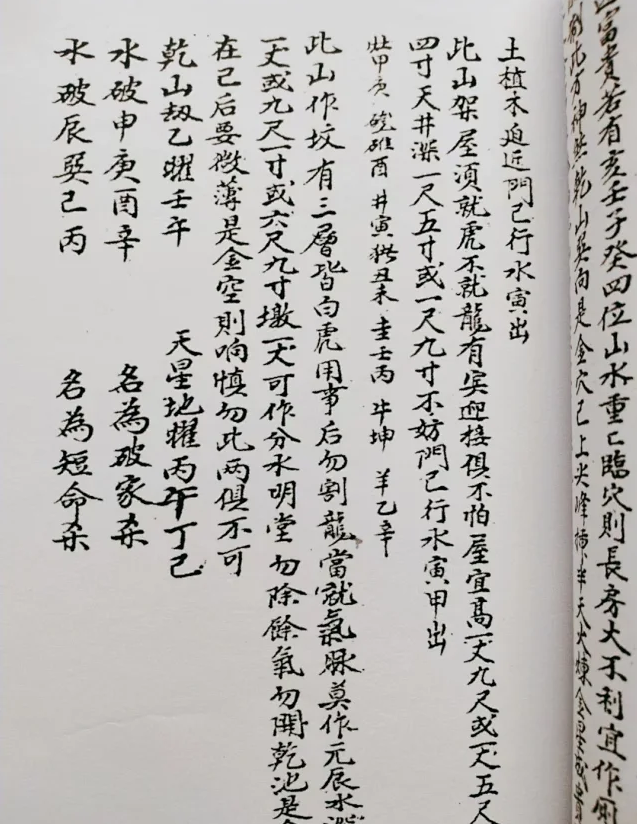 富貴若有亥壬子癸四位山水重亡臨穴則長房大不利宜作
乾山巽向是金穴已上尖峰插半天火煉金星成貴
土植木迫近門已行水寅出
此山架屋湏就虎不就龍有宾迎接俱不怕屋宜高一丈九尺或一丈五尺
四寸天井深一尺五寸或一尺九寸不妨門已行水寅甲出
灶甲庚碓酉井寅猪丑未圭壬丙牛坤羊乙辛
此山作坟有三層皆白虎用事后勿割龍當就氣脉莫作元辰水
一丈或九尺一寸或六尺九寸墩一丈可作分水明堂勿除餘氣勿開乾池是
在已后要微薄是金空則响慎勿此两俱不可
乾山劫乙曜壬午 天星地曜丙午丁已
水破申庚酉辛 名為破家杀
水破辰巽已丙 名為短命杀